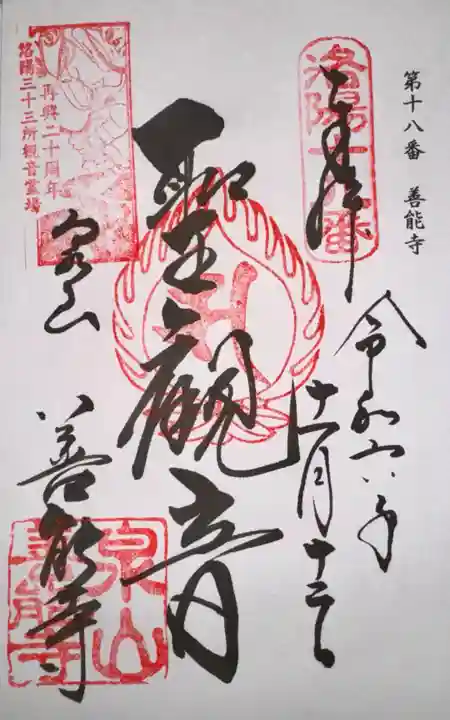 第十八番 善能寺
奉拝
洛陽十八番
令和六年
十一月十三日
聖観音
再興二十周年
洛陽三十三所観音霊場
泉山
善能寺
泉山
善能寺